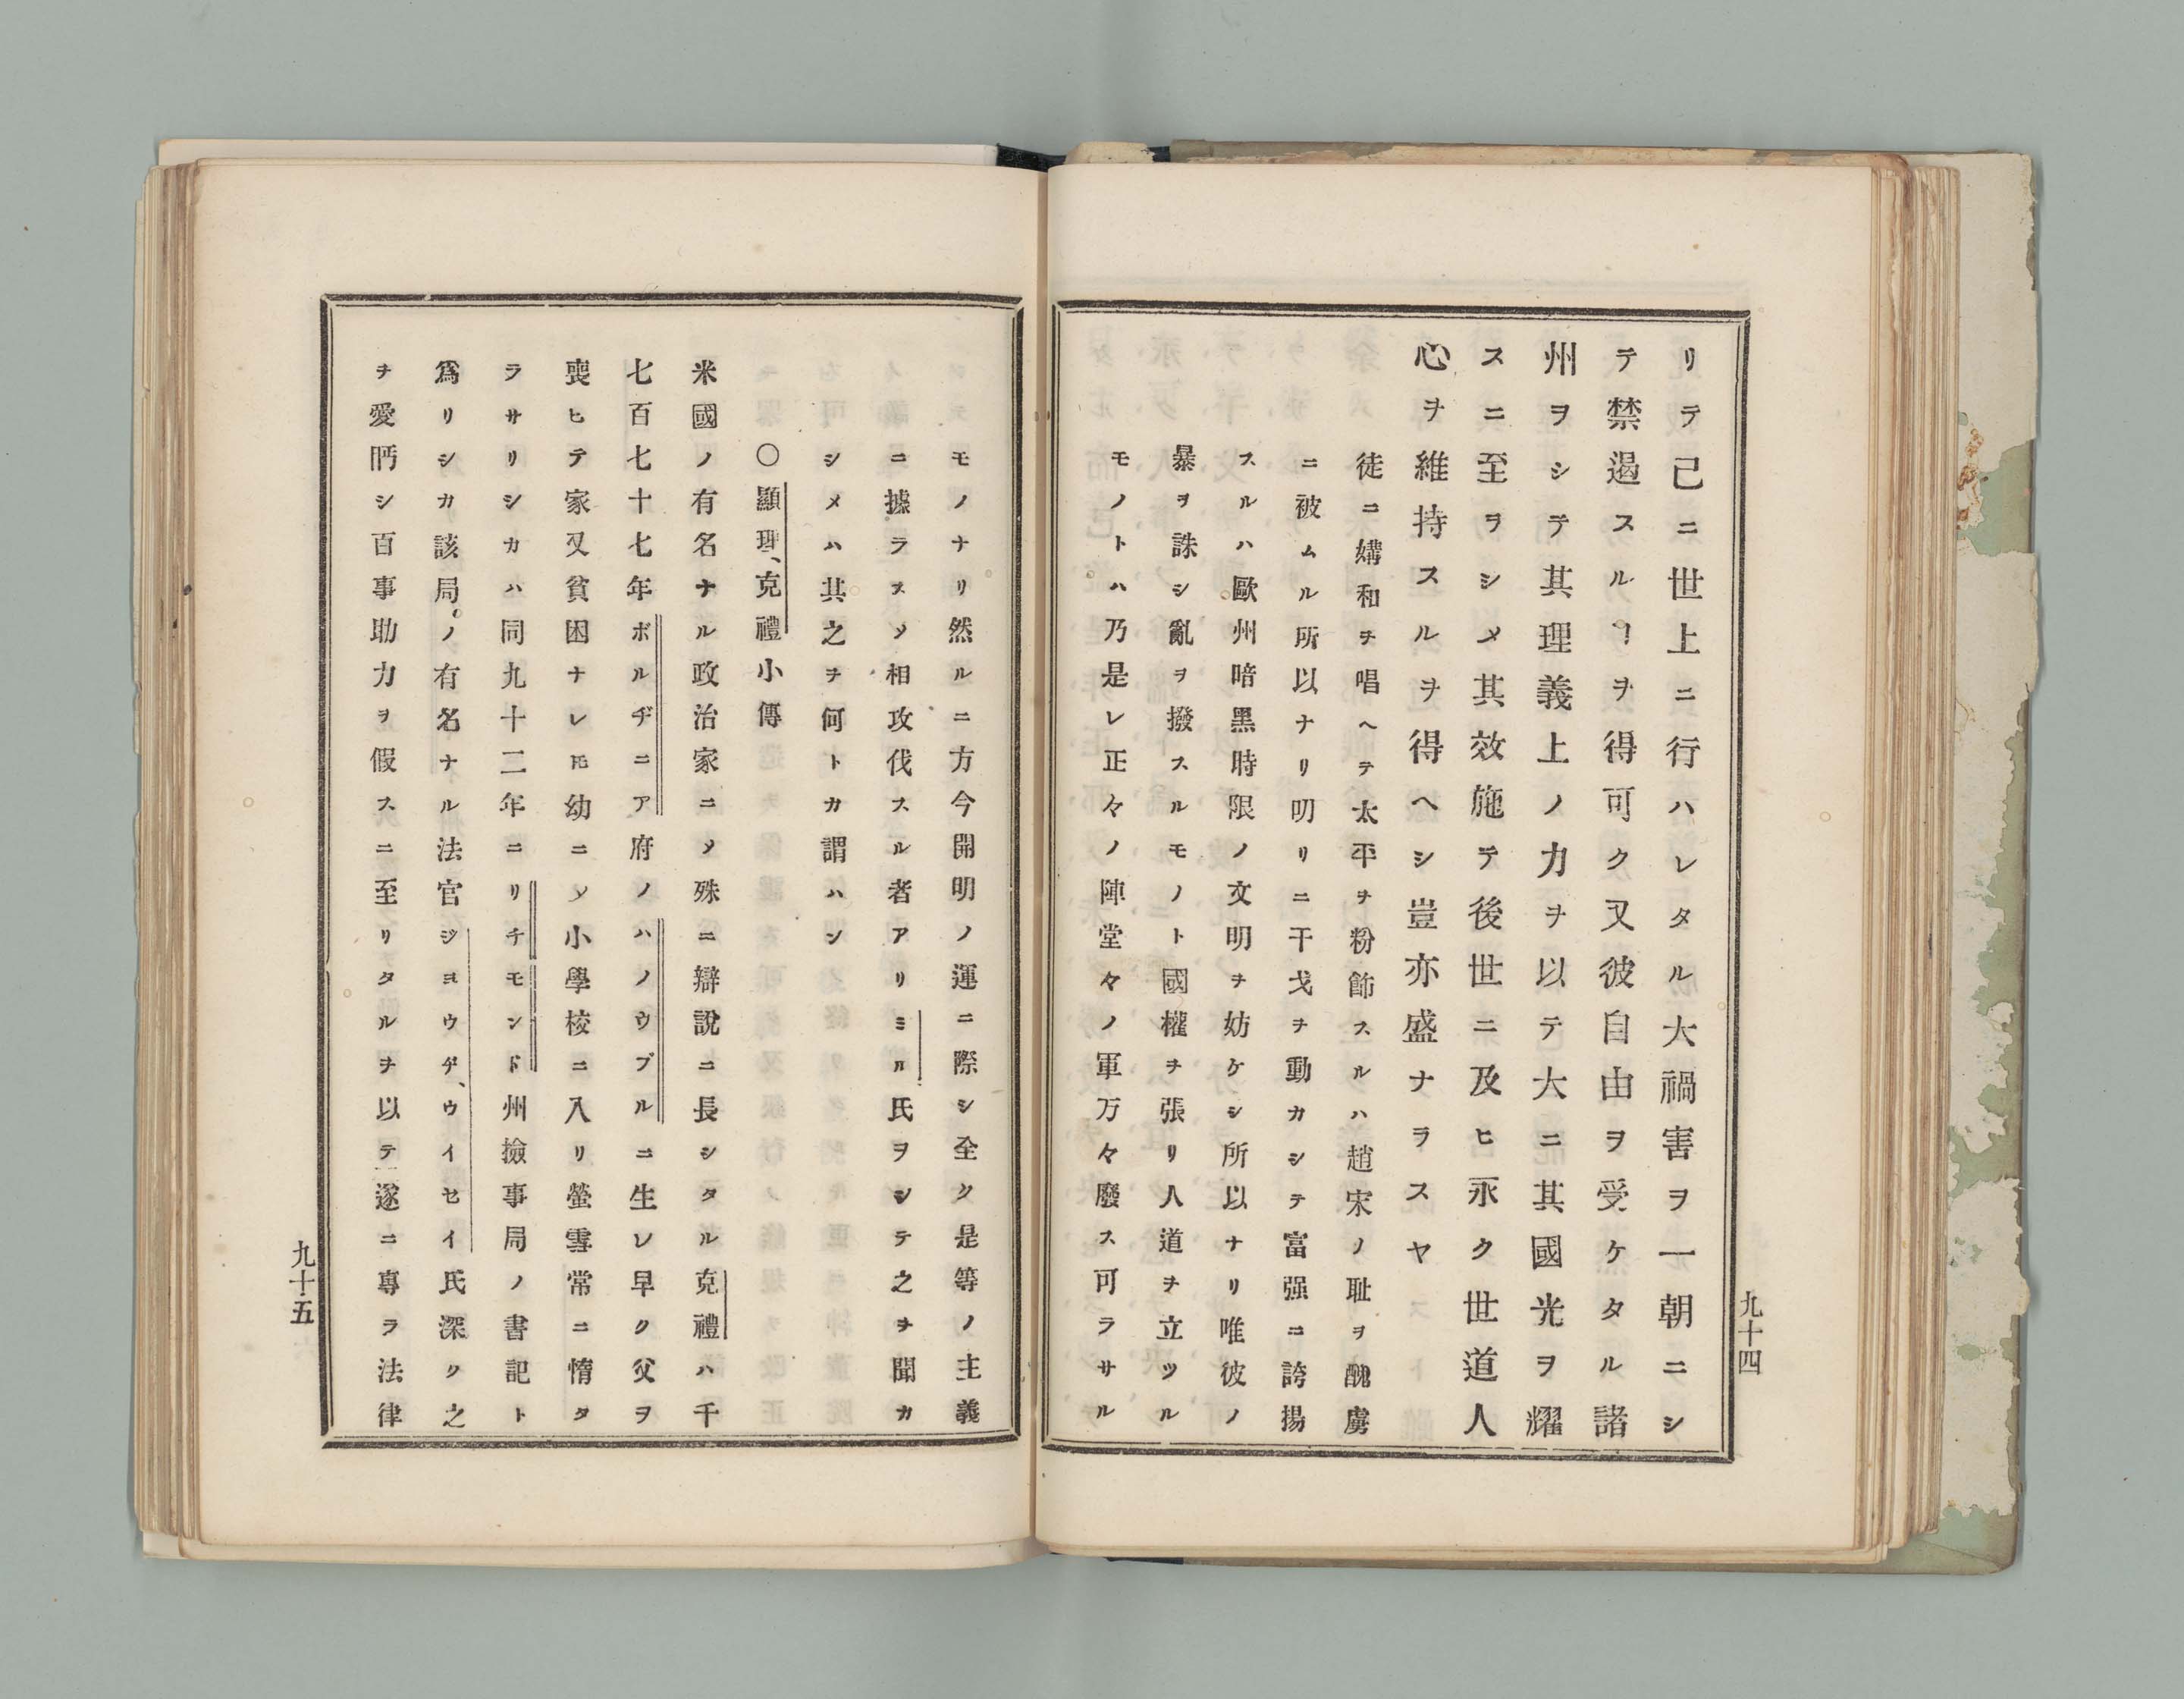 リテ已ニ世上ニ行ハレタル大禍害ヲ一朝ニシ
テ禁遏スルヿヲ得可ク又彼自由ヲ受ケタル諸
州ヲシテ其理義上ノ力ヲ以テ大ニ其國光ヲ耀
スニ至ヲシメ其效施テ後世ニ及ヒ永ク世道人
心ヲ維持スルヲ得ヘシ豈亦盛ナラスヤ
徒ニ媾和ヲ唱ヘテ太平ヲ粉飾スルハ趙宋ノ耻ヲ醜虜
ニ被ムル所以ナリ明リニ干戈ヲ動カシテ富强ニ誇揚
スルハ歐州暗黑時限ノ文明ヲ妨ケシ所以ナリ唯彼ノ
暴ヲ誅シ亂ヲ撥スルモノト國權ヲ張リ人道ヲ立ツル
モノトハ乃是レ正々ノ陣堂々ノ軍万々廢ス可ラサル
九十四
モノナリ然ルニ方今開明ノ運ニ際シ全ク是等ノ主義
ニ據ラスメ相攻伐スル者アリミル氏ヲシテ之ヲ聞カ
シメハ其之ヲ何トカ謂ハン
〇顯理、克禮小傳
米國ノ有名ナル政治家ニメ殊ニ辯說ニ長シタル克禮ハ千
七百七十七年ボルヂニア府ノハノウブルニ生レ早ク父ヲ
喪ヒテ家又貧困ナレ𪜈幼ニメ小學校ニ入リ螢雪常ニ惰タ
ラサリシカハ同九十二年ニリチモンド州撿事局ノ書記ト
爲リシカ該局ノ有名ナル法官ジヨウヂ、ウイセイ氏深ク之
ヲ愛眄シ百事助力ヲ假スニ至リタルヲ以テ遂ニ專ラ法律
九十五